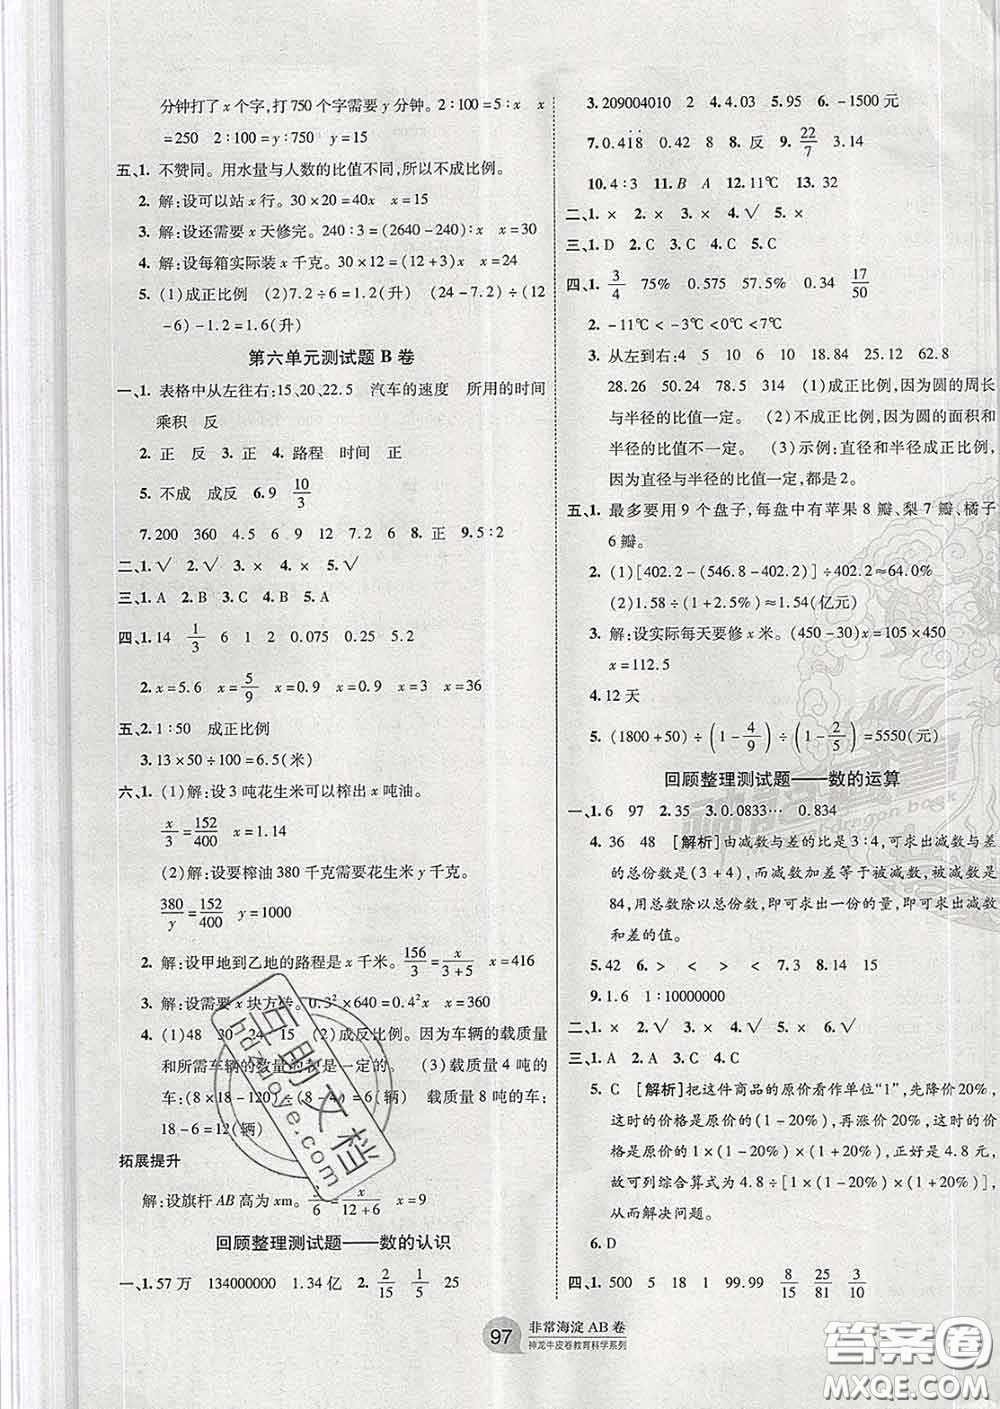 分钟打了 x 个字,打 750 个字需要 y 分钟。2∶100=5∶x x
=250 2∶100=y∶750 y=15
五、1. 不赞同。用水量与人数的比值不同,所以不成比例。
2. 解:设可以站 x 行。30×20=40x x=15
3. 解:设还需要 x 天修完。240∶3=(2640-240)∶x x=30
4. 解:设每箱实际装 x 千克。30×12=(12+3)x x=24
5. (1)成正比例 (2)7.2÷6=1.2(升) (24-7.2)÷(12
-6)-1.2=1.6(升)
第六单元测试题 B 卷
一、1. 表格中从左往右:15、20、22.5 汽车的速度 所用的时间
乘积 反
2. 正 反 3. 正 4. 路程 时间 正
5. 不成 成反 6. 9 10/3
7. 200 360 4.5 6 9 12 7.2 6 8. 正 9. 5∶2
二、1. √ 2. √ 3. × 4. × 5. √
三、1. A 2. B 3. C 4. B 5. A
四、1. 14 1/3 6 1 2 0.075 0.25 5.2
2. x=5.6 x=5/9 x=0.9 x=0.9 x=3 x=36
五、2. 1∶50 成正比例
3. 13×50÷100=6.5(米)
六、1. (1)解:设 3 吨花生米可以榨出 x 吨油。
x/3=152/400 x=1.14
(2)解:设要榨油 380 千克需要花生米 y 千克。
380/y=152/400 y=1000
2. 解:设甲地到乙地的路程是 x 千米。156/3=x/(3+5) x=416
3. 解:设需要 x 块方砖。0.3²×640=0.4²x x=360
4. (1)48 30 24 15 (2)成反比例。因为车辆的载质量
和所需车辆的数量的积是一定的。 (3)载质量 4 吨的
车:(8×18-120)÷(8-4)=6(辆) 载质量 8 吨的车:
18-6=12(辆)
拓展提升
解:设旗杆 AB 高为 xm。x/6=x/(12+6) x=9
回顾整理测试题——数的认识
一、1. 57 万 134000000 1.34 亿 2. 2/15 1/5 25
3. 209004010 2 4. 4.03 5. 95 6. -1500 元
7. 0.4̇18̇ 0.42 8. 反 9. 22/7 3.14
10. 4∶3 11. B A 12. 11℃ 13. 32
二、1. × 2. × 3. × 4. √ 5. ×
三、1. D 2. C 3. C 4. C 5. C
四、1. 3/4 75% 0.575 57.5% 0.34 17/50
2. -11℃<-3℃<0℃<7℃
3. 从左到右:4 5 10 18.84 25.12 62.8
28.26 50.24 78.5 314 (1)成正比例,因为圆的周长
与半径的比值一定。 (2)不成正比例,因为圆的面积和
半径的比值不一定。 (3)示例:直径和半径成正比例,
因为直径与半径的比值一定,都是 2。
五、1. 最多要用 9 个盘子,每盘中有苹果 8 瓣、梨 7 瓣、橘子
6 瓣。
2. (1)[402.2-(546.8-402.2)]÷402.2≈64.0%
(2)1.58÷(1+2.5%)≈1.54(亿元)
3. 解:设实际每天要修 x 米。(450-30)x=105×450
x=112.5
4. 12 天
5. (1800+50)÷(1-4/9)÷(1-2/5)=5550(元)
回顾整理测试题——数的运算
一、1. 6 97 2. 35 3. 0.0833… 0.834
4. 36 48 [解析]由减数与差的比是 3∶4,可求出减数与差
的总份数是(3+4),而减数加差等于被减数,被减数是
84,用总数除以总份数,即可求出一份的量,即可求出减数
和差的值。
5. 42 6. > < > < 7. 3 8. 14 15
9. 1.6 1∶10000000
二、1. × 2. √ 3. √ 4. × 5. ×
三、1. A 2. B 3. A 4. C
5. C [解析]把这件商品的原价看作单位“1”,先降价20%,
这时的价格是原价的(1-20%),再涨价20%,这时的价
格是原价的(1-20%)×(1+20%),正好是4.8元,
故可列综合算式为4.8÷[1×(1-20%)×(1+20%)],
从而解决问题。
6. D
四、1. 500 5 18 1 99.99 8/15 25/81 3/10
97
非常海淀 AB 卷
神龙牛皮卷教育科学系列
互助文档
huzhoye.com
dragon book
答案卷
MXQE.COM